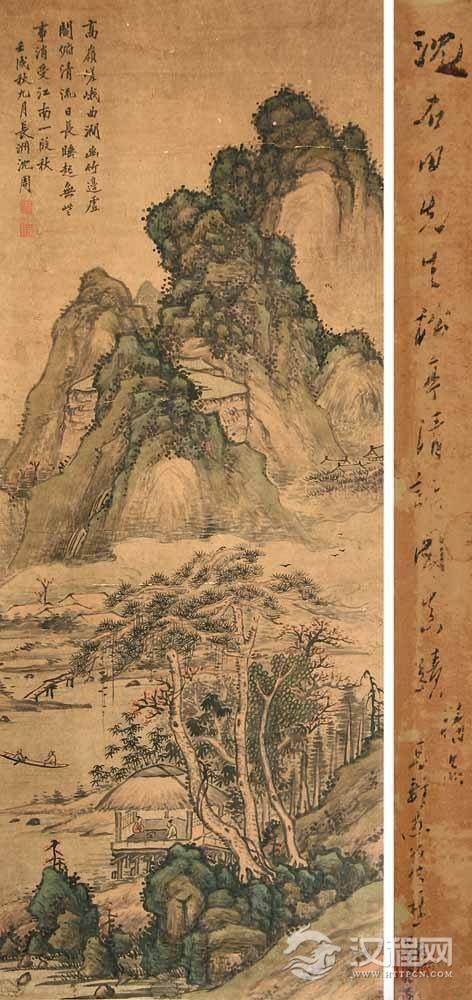 高嶺嵯峨曲澗幽竹邊虛
閣俯清流日長睡起無些
事消受江南一段秋
壬戌秋九月長洲沈周
沈石田先生松亭清話圖真蹟
汉程网
WWW.HTTPCN.COM